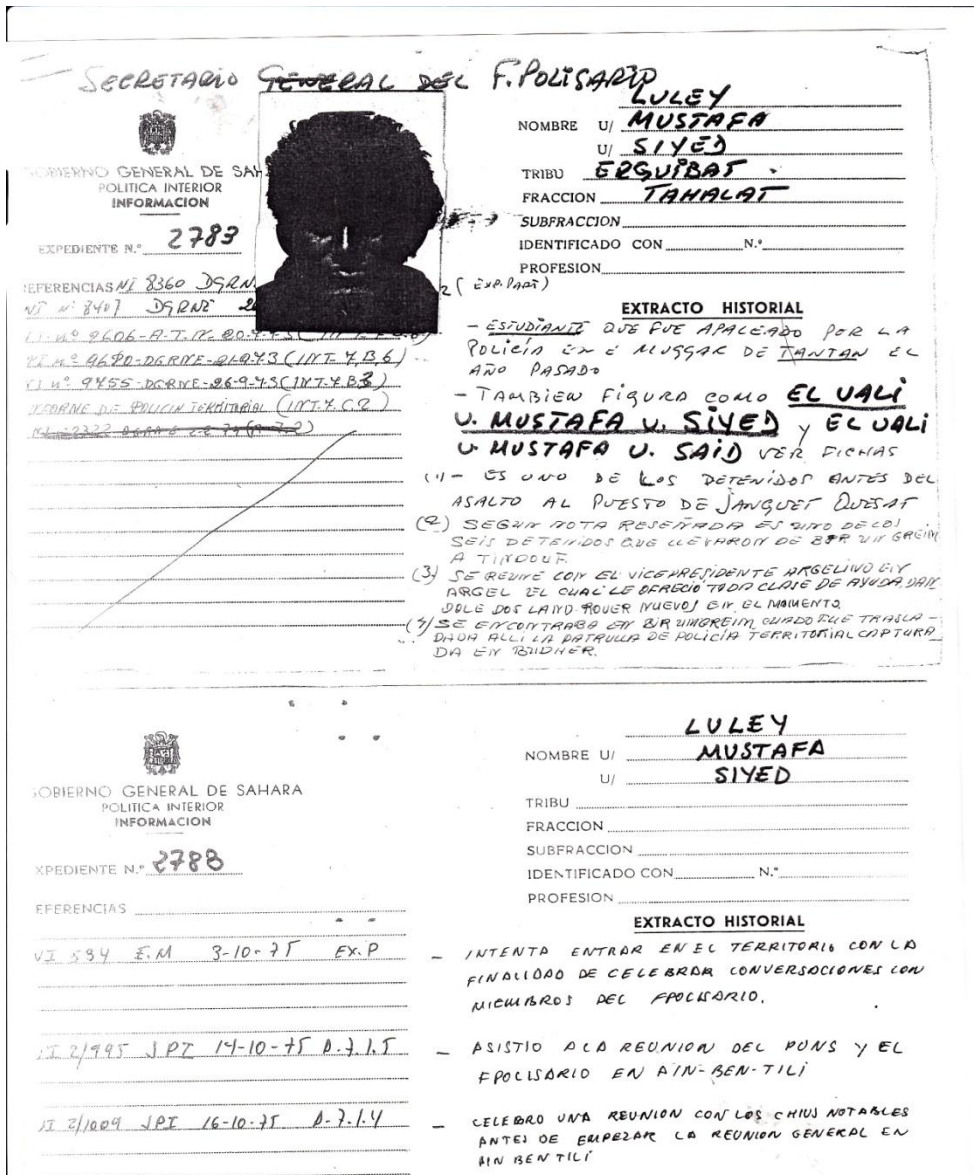 SECRETARIO GENERAL DEL F. POLISARIO
GOBIERNO GENERAL DE SAH
POLITICA INTERIOR
INFORMACION
EXPEDIENTE N.° 2783
EFERENCIAS NI 8360 DGRN
NI Nº 8407 DGRNE 2
Nº 9606-A-T.N. 20-
Nº 9690-DGRNE-21-9-73 (INT. 7, B, 6)
Nº 9755-DGRNE-26-9-73 (INT. 7. B.3)
INFORME DE POLICIA TERRITORIAL (INT. 7. C.2)
2 (EXP. PART)
LULEY
NOMBRE U/ MUSTAFA
U/ SIYED
TRIBU ERGUIBAT
FRACCION TAHALAT
SUBFRACCION
IDENTIFICADO CON N.°
PROFESION
EXTRACTO HISTORIAL
- ESTUDIANTE QUE FUE APALEADO POR LA
POLICÍA EN E MUGGAR DE TANTAN EL
AÑO PASADO
- TAMBIEN FIGURA COMO EL UALI
U. MUSTAFA U. SIYED Y EL UALI
U. MUSTAFA U. SAID VER FICHAS
(1) - ES UNO DE LOS DETENIDOS ANTES DEL
ASALTO AL PUESTO DE JANGUET QUESAT
(2) SEGUN NOTA RESEÑADA ES UNO DE LOS
SEIS DETENIDOS QUE LLEVARON DE BIR UN GREIN
A TINDOUF
(3) SE REUNE CON EL VICEPRESIDENTE ARGELINO EN
ARGEL EL CUAL LE OFRECIO TODA CLASE DE AYUDA, DAN
DOLE DOS LAND-ROVER NUEVOS EN EL MOMENTO
(4) SE ENCONTRABA EN BIR UMGREIM CUADO FUE TRASLA-
DADA ALLI LA PATRULLA DE POLICÍA TERRITORIAL CAPTURA
DA EN
OBIERNO GENERAL DE SAHARA
POLITICA INTERIOR
INFORMACION
XPEDIENTE N.° 2788
EFERENCIAS
VI 534 E.M 3-10-75 EX.P
2/995 JPI 14-10-75 A.7.1.5
2/1009 JPI 16-10-75 A-7.1.4
LULEY
NOMBRE U/ MUSTAFA
U/ SIYED
TRIBU
FRACCION
SUBFRACCION
IDENTIFICADO CON N.°
PROFESION
EXTRACTO HISTORIAL
- INTENTA ENTRAR EN EL TERRITORIO CON LA
FINALIDAD DE CELEBRAR CONVERSACIONES CON
MIEMBROS DEL FPOLISARIO.
- ASISTIO A LA REUNION DEL PUNS Y EL
FPOLISARIO EN AIN-BEN-TILI
- CELEBRO UNA REUNION CON LOS CHIUJ NOTABLES
ANTES DE EMPEZAR LA REUNION GENERAL EN
AIN BEN TILI